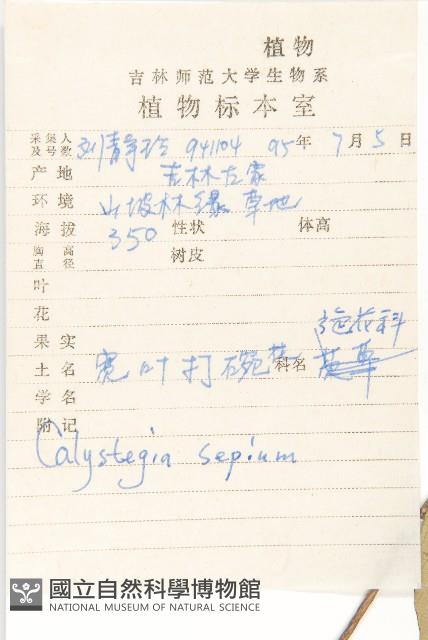 植物
吉林师范大学生物系
植物标本室
采集人及号数 刘静玲 941104 95年 7月5日
产地 吉林左家
环境 山坡林缘 草地
海拔 350 性状 体高
胸高直径 树皮
叶
花
旋花科
果实
土名 宽叶打碗花 科名
学名
附记
Calystegia sepium
國立自然科學博物館
NATIONAL MUSEUM OF NATURAL SCIENCE